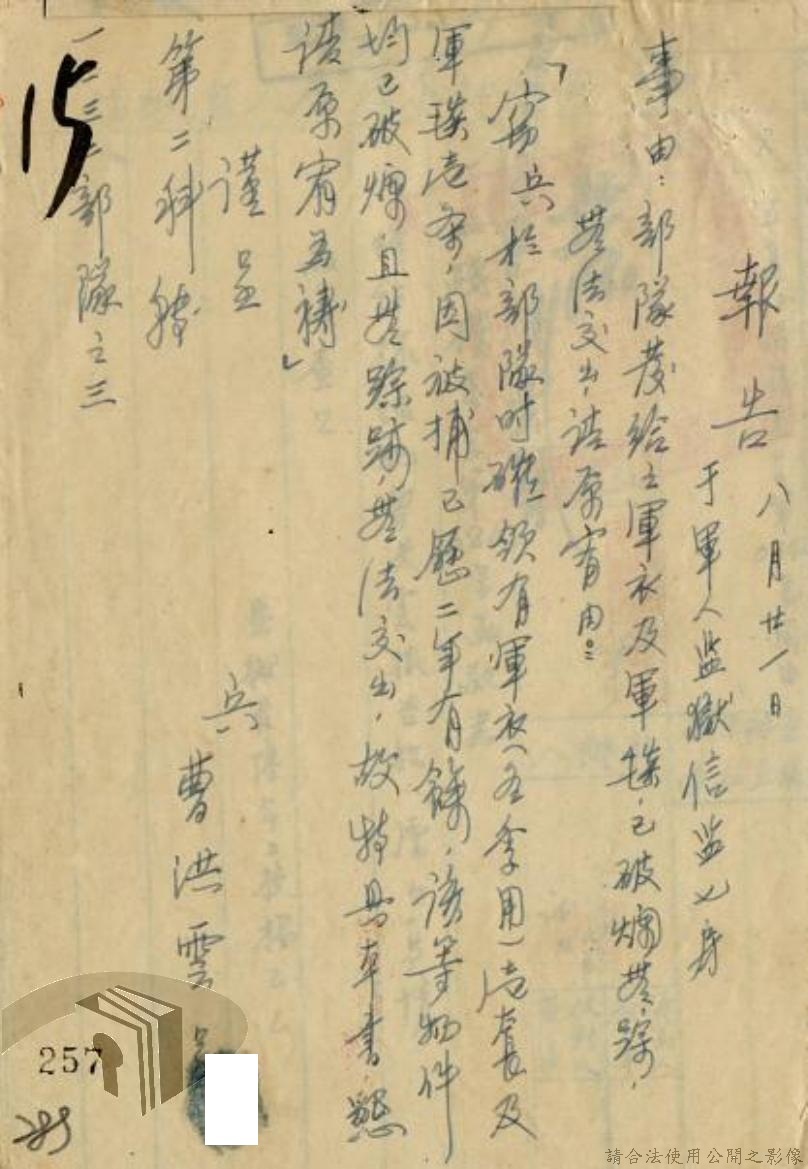 報告 八月廿一日
于軍人監獄信監七房
事由：部隊發給之軍衣及軍毯，已破爛無踪，
無法交出，請原宥由：
「竊兵於部隊時確領有軍衣（冬季用）壱套及
軍毯壱条，因被捕已歷二年有餘，該等物件
均已破爛，且無踪跡，無法交出，故特具草書，懇
請原宥為禱」
謹呈
第二科
兵 曹洪雲呈
一二三二部隊之三
15
257
285
請合法使用公開之影像